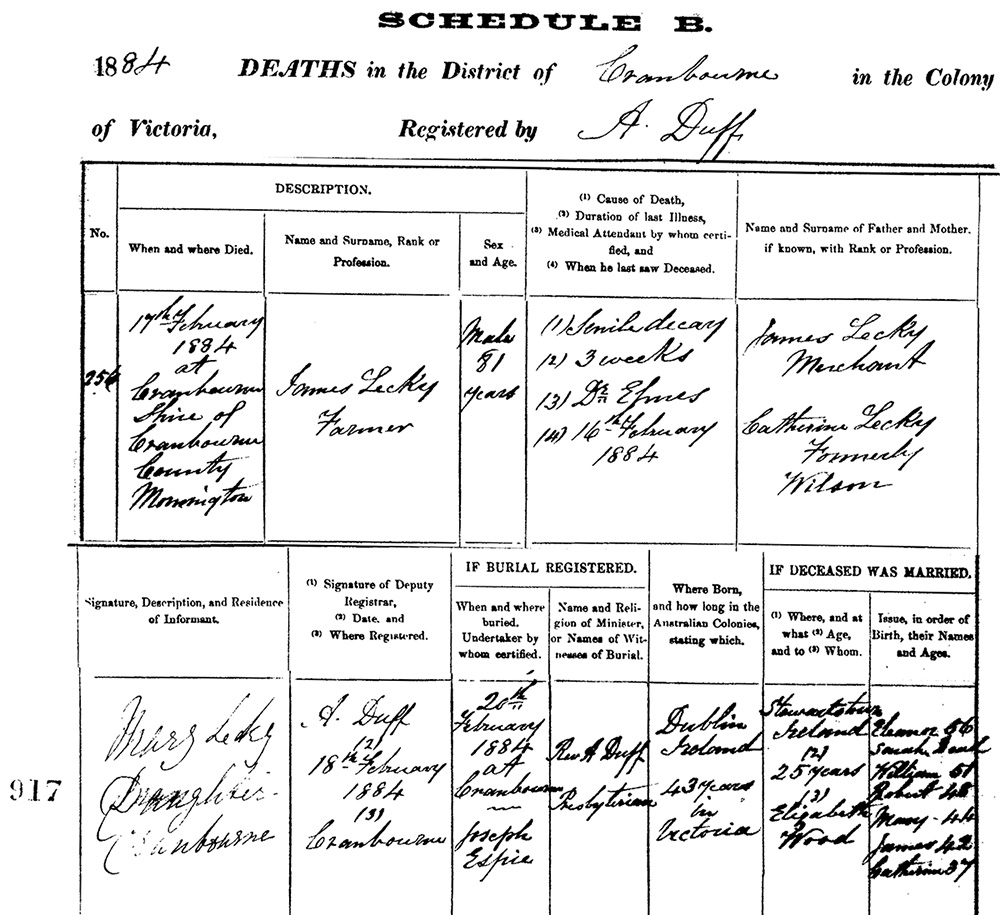 SCHEDULE B.
1884 DEATHS in the District of Cranbourne in the Colony
of Victoria, Registered by A. Duff
No.
DESCRIPTION.
When and where Died.
Name and Surname, Rank or
Profession.
Sex
and Age.
(1) Cause of Death,
(2) Duration of last Illness,
(3) Medical Attendant by whom certi-
fied, and
(4) When he last saw Deceased.
Name and Surname of Father and Mother.
if known, with Rank or Profession.
256
17th February
1884
at
Cranbourne
Shire of
Cranbourne
County
Mornington
James Lecky
Farmer
Male
81
years
(1) Senile decay
(2) 3 weeks
(3) Dr
(4) 16th February
1884
James Lecky
Merchant
Catherine Lecky
Formerly
Wilson
Signature, Description, and Residence
of Informant.
(1) Signature of Deputy
Registrar,
(2) Date, and
(3) Where Registered.
IF BURIAL REGISTERED.
When and where
buried.
Undertaker by
whom certified.
Name and Reli-
gion of Minister,
or Names of Wit-
nesses of Burial.
Where Born,
and how long in the
Australian Colonies,
stating which.
IF DECEASED WAS MARRIED.
(1) Where, and at
what (2) Age,
and to (3) Whom.
Issue, in order of
Birth, their Names
and Ages.
917
Mary Lecky
Daughter
Cranbourne
A. Duff
(2)
18th February
1884
(3)
Cranbourne
20th
February
1884
at
Cranbourne
Joseph
Espie
Rev A Duff
Presbyterian
Dublin
Ireland
43 years
in
Victoria
Stewartstown
Ireland
(2)
25 years
(3)
Elizabeth
Wood
Eleanor 56
Sarah Death
William 51
Robert 48
Mary - 44
James 42
Catherine 37